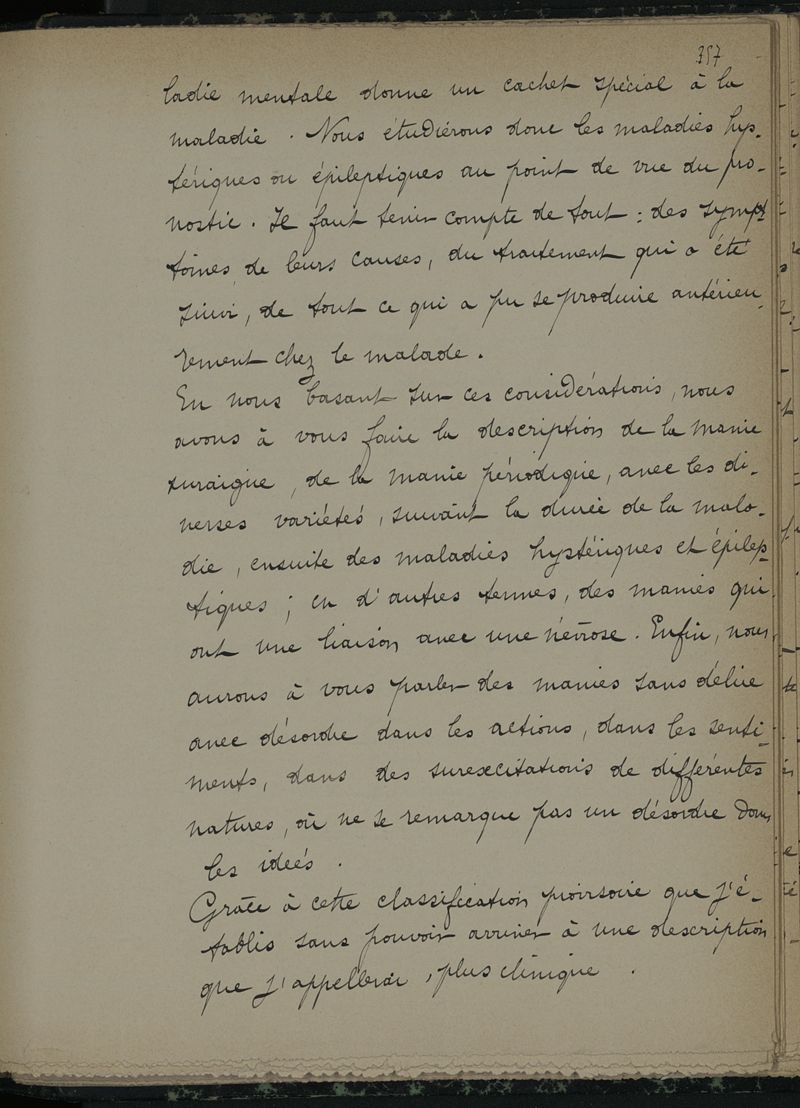 357
ladie mentale donne un cachet spécial à la
maladie. Nous étudiérons donc les maladies hys-
tériques ou épileptiques au point de vue du pro-
nostic. Il faut tenir compte de tout : des sympt
tômes de leurs causes, du traitement qui a été
suivi, de tout ce qui a pu se produire antérieu-
rement chez le malade.
En nous basant sur ces considérations, nous
avons à vous faire la description de la manie
suraigue, de la manie périodique, avec les di-
verses variétés, suivant la durée de la mala-
die, ensuite des maladies hystériques et épilep-
tiques ; en d'autres termes, des manies qui
ont une liaison avec une névrose. Enfin, nous
aurons à vous parler des manies sans délire
avec désordre dans les actions, dans les senti-
ments, dans des surexcitations de différentes
natures, où ne se remarque pas un désordre dans
les idées.
Grâce à cette classification que j'é-
tablis sans pouvoir arriver à une description
que j'appellerai, plus clinique.